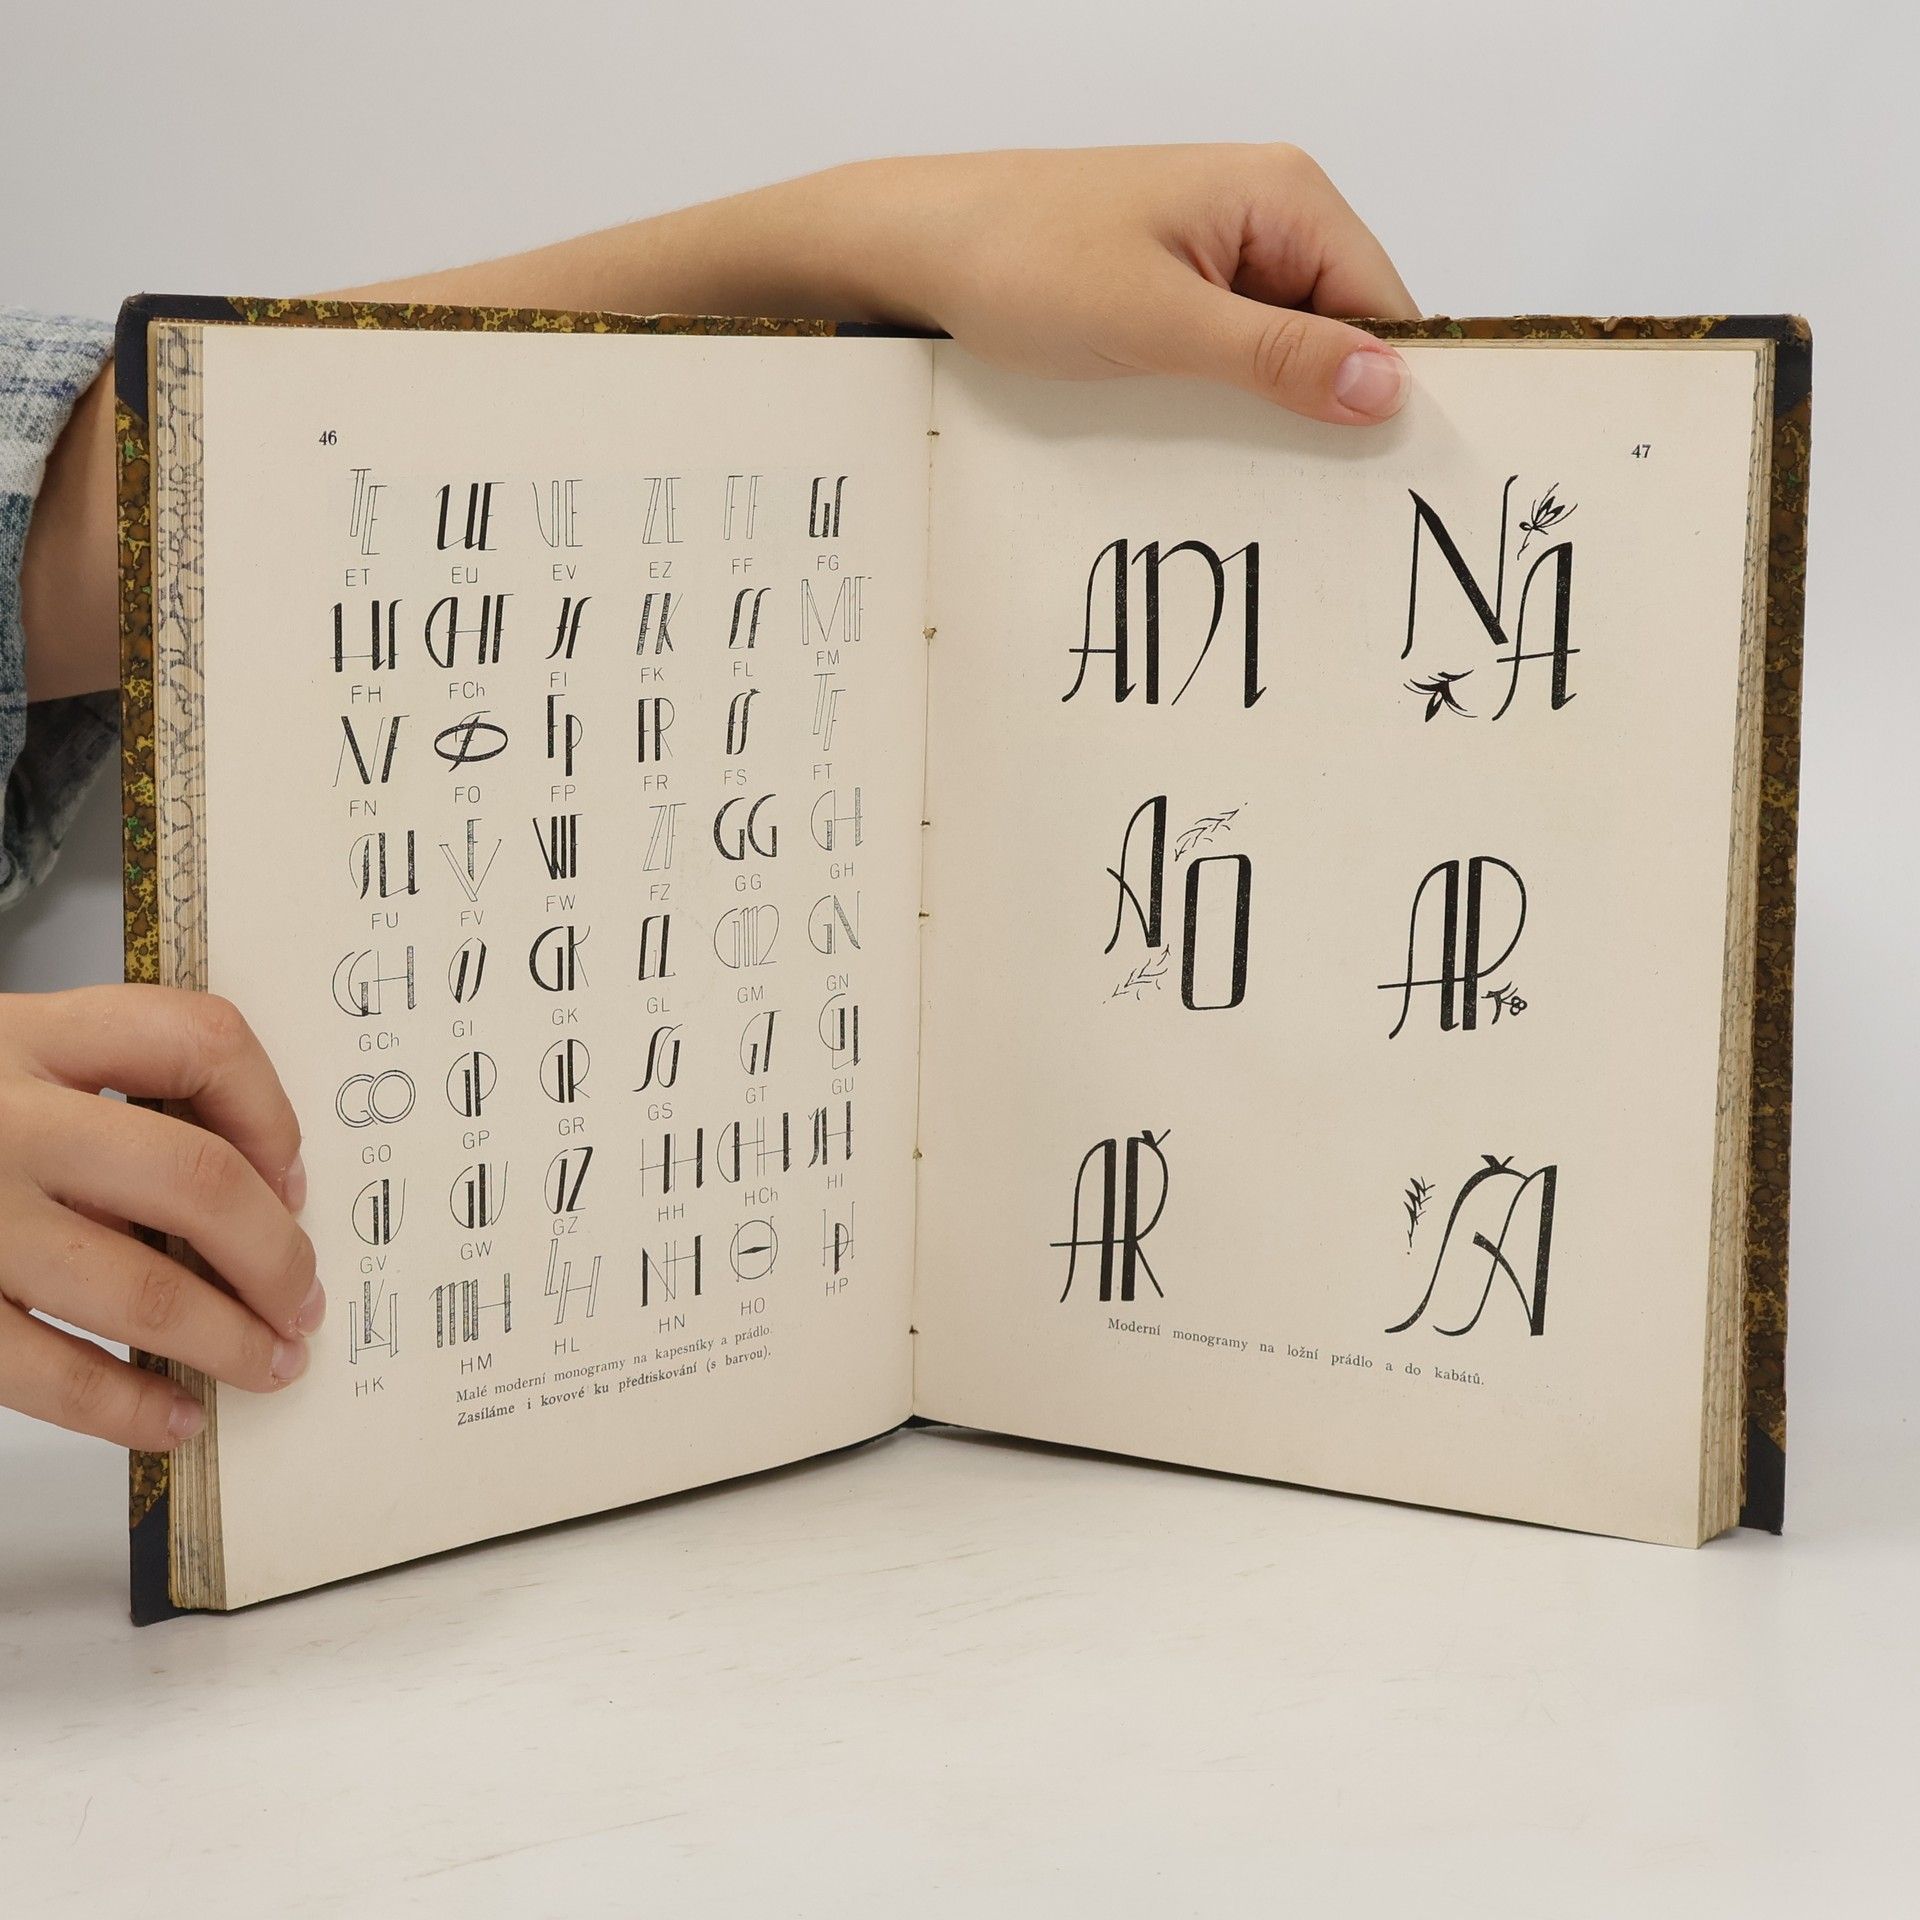 46
ET EU EV EZ FF FG
FH FCh FI FK FL FM
FN FO FP FR FS FT
FU FV FW FZ GG GH
GCh GI GK GL GM GN
GO GP GR GS GT GU
GV GW GZ HH HCh HI
HK HM HL HN HO HP
Malé moderní monogramy na kapesníky a prádlo.
Zasíláme i kovové ku předtiskování (s barvou).
47
AM NA
AO AP
AŘ ŠA
Moderní monogramy na ložní prádlo a do kabátů.